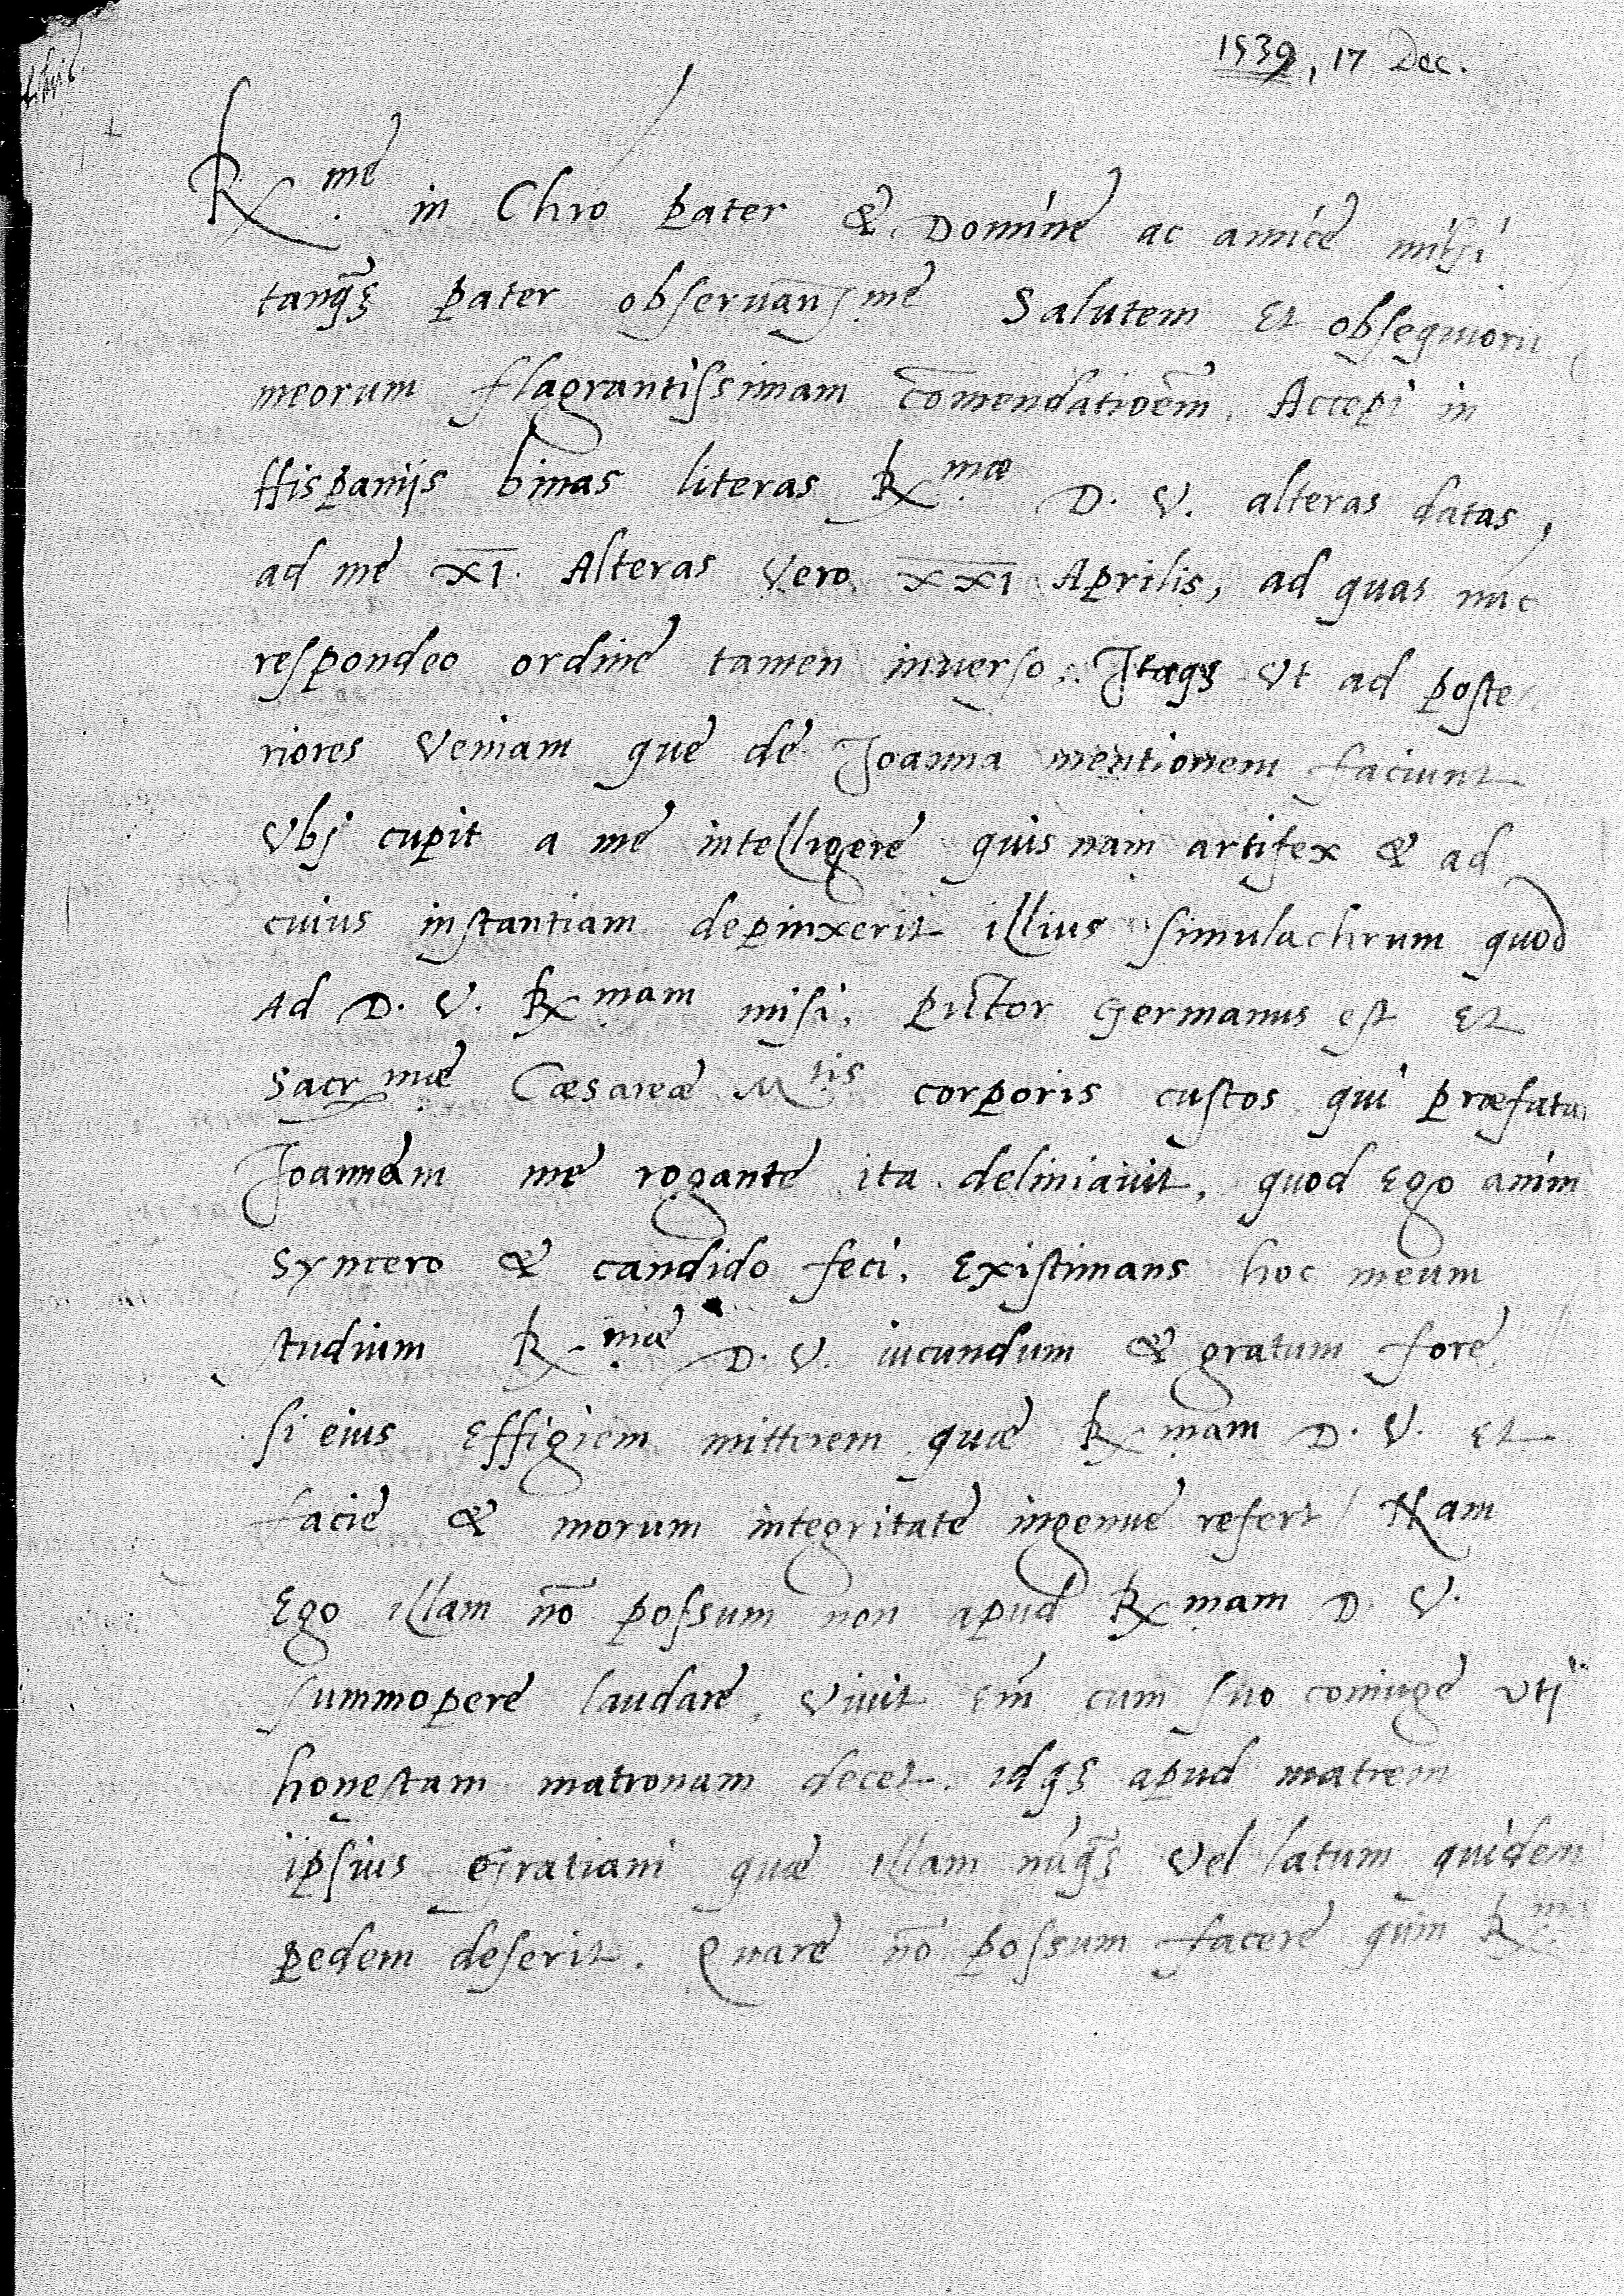 1539, 17 Dec.
R.me in Chro pater & Domine ac amice mihi
tanq̃ȝ pater obseruanſ.me Salutem Et obsequiorũ
meorum flagrantissimam com̃endatioẽm. Accepi in
Hispanijs binas literas R.mæ D. V. alteras datas,
ad me XI. Alteras Vero XXI Aprilis, ad quas nũc
respondeo ordine tamen inuerso. Itaqȝ Vt ad poste
riores Veniam que de Joanna mentionem faciunt
Vbj cupit a me intelligere quis nam artifex & ad
cuius instantiam depinxerit illius simulachrum quod
Ad D. V. R.mam misi. Pictor Germanus est Et
Sacr.mæ Cæsareæ M.tis corporis custos qui præfatam
Joannam me rogante ita deliniauit. quod Ego anim
syncero & candido feci. Existimans hoc meum
studium R.mæ D. V. iucundum & gratum fore
si eius Effigiem mitterem quæ R.mam D. V. Et
facie & morum integritate ingenue refert / Nam
Ego illam nõ possum non apud R.mam D. V.
summopere laudare. Viuit Em̃ cum suo coniuge vtj
honestam matronam decet. idqȝ apud matrem
ipsius Gratiani quæ illam nũq̃ȝ Vel latum quidem
pedem deserit. Quare nõ possum facere quin R.m